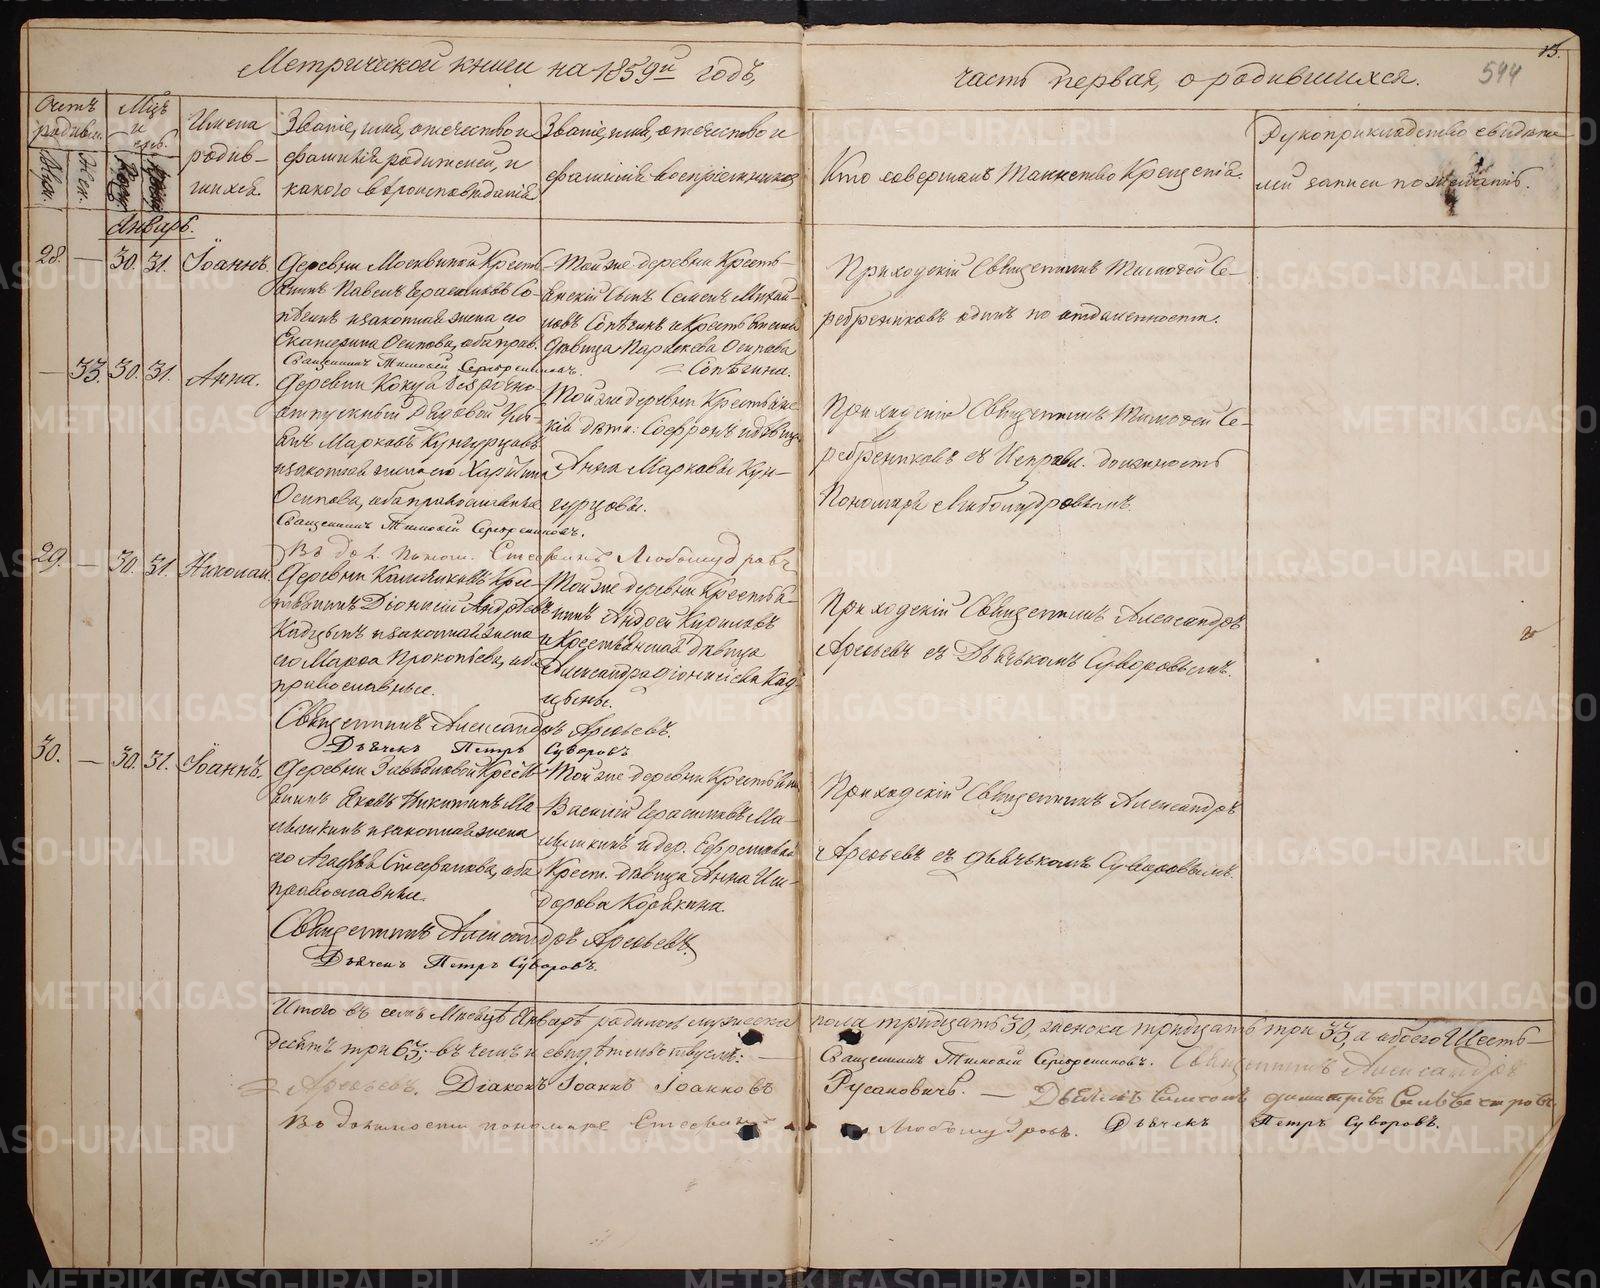 Метрической книги на 1859й годъ,
часть первая, о родившихся.
13.
544
Счетъ родивш.
Муж.
Жен.
Мѣцъ и
Рожд.
Крещ.
Имена
родив-
шихся.
Званіе, имя, отчество и
фамилія родителей, и
какого вѣроисповѣданія
Званіе, имя, отчество и
фамилія воспріемниковъ
Кто совершалъ Таинство Крещенія.
Рукоприкладство свидѣте-
лей записи по желанію.
Январь.
28. — 30. 31. Іоаннъ.
Деревни Москвиной Кресть-
янинъ Павелъ Герасимовъ Со-
пѣгинъ и законная жена его
Екатерина Осипова, оба прав.
Священникъ Тимофей Серебрениковъ.
Тойже деревни Кресть-
янскій сынъ Семенъ Михай-
ловъ Сопѣгинъ и Крестьянская
дѣвица Параскева Осипова
Сопѣгина.
Приходскій Священникъ Тимофей Се-
ребрениковъ одинъ по отдаленности.
— 33. 30. 31. Анна.
Деревни Кокуя безсрочно-
отпускный Рядовой
Маркъ Кунгурцовъ
и законная жена его Харитина
Осипова, оба православные
Священникъ Тимофей Серебрениковъ.
Въ дол. поном. Стефанъ Любомудровъ
Тойже деревни Крестьянс-
кія дѣти: Софронъ и дѣвица
Анна Марковы Кун-
гурцовы.
Приходскій Священникъ Тимофей Се-
ребрениковъ съ Исправл. должность
Пономаря Любомудровымъ.
29. — 30. 31. Николай.
Деревни Калачиковъ Кре-
стьянинъ Діонисій Андреевъ
Кадцынъ и законная жена
его Марѳа Прокопьева, оба
православные.
Священникъ Александръ Арефьевъ.
Дьячекъ Петръ Суворовъ
Тойже деревни Крестья-
нинъ Андрей Кириловъ
и Крестьянская дѣвица
Александра Діонисіева Кад-
цыны.
Приходскій Священникъ Александръ
Арефьевъ съ Дьячькомъ Суворовымъ.
30. — 30. 31. Іоаннъ.
Деревни Завьяловой Крест-
янинъ Яковъ Никитинъ Ма-
мышкинъ и законная жена
его Агафья Стефанова, оба
православные.
Священникъ Александръ Арефьевъ
Дьячекъ Петръ Суворовъ.
Тойже деревни Крестьянинъ
Василій Герасимовъ Ма-
мышкинъ и дер. Ефремовой
Крест. дѣвица Анна Иси-
дорова Корякина.
Приходскій Священникъ Александръ
Арефьевъ съ дьячькомъ Суворовымъ.
Итого въ семъ Мѣсяцѣ Январѣ родилось мужеска пола тридцать 30, женска тридцать три 33, а обоего Шесть-
десятъ три 63; въ чемъ и свидѣтельствуемъ: — Священникъ Тимофей Серебрениковъ. Священникъ Александръ
Арефьевъ. Діаконъ Іоаннъ Іоанновъ Русановичъ. — Дьячекъ Димитріевъ Сильвестровъ.
Въ должности пономаря Стефанъ Любомудровъ. Дьячекъ Петръ Суворовъ.
METRIKI.GASO-URAL.RU